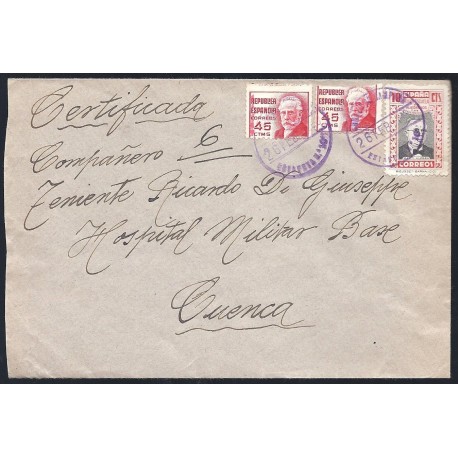 Certificada
6
Compañero
Teniente Ricardo Di Giuseppe
Hospital Militar Base
Cuenca
REPUBLICA
ESPAÑOLA
CORREOS
45
CTMS
REPUBLICA
ESPAÑOLA
CORREOS
45
CTMS
10 ESPAÑA CTS
CORREOS
26 FEB
26 FEB